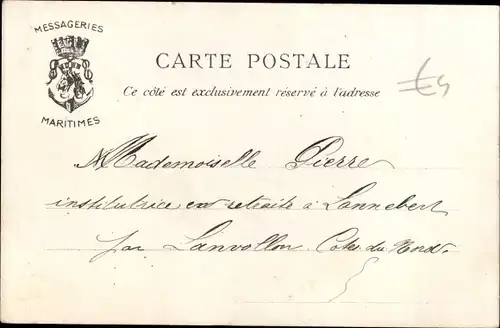 MESSAGERIES
MARITIMES
CARTE POSTALE
Ce côté est exclusivement réservé à l'adresse
Mademoiselle Pierre
institutrice en retraite à Lannebert
par Lanvollon Côtes du Nord.